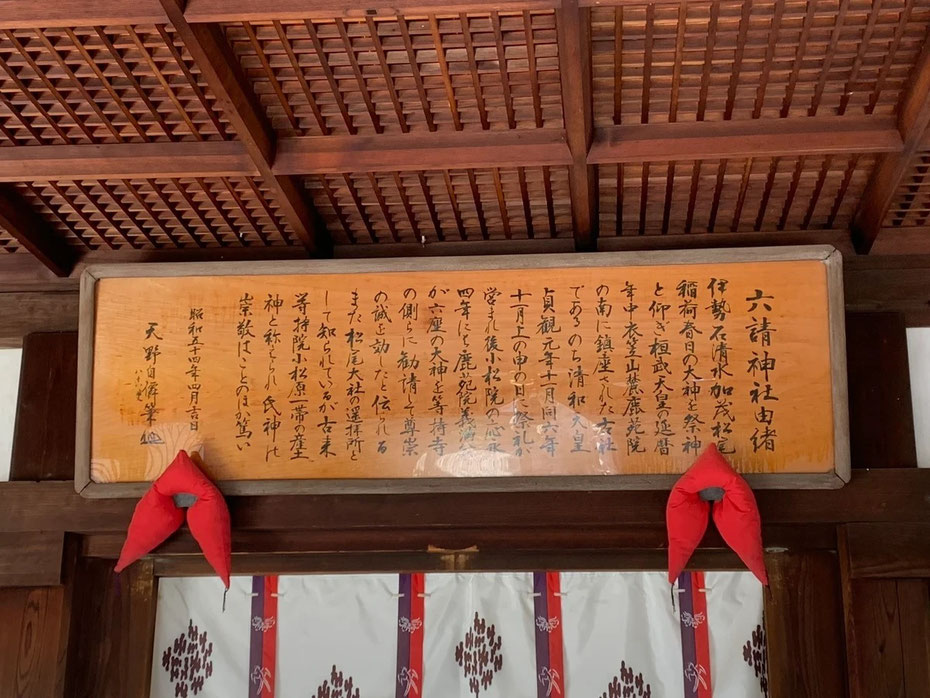 六請神社由緒
伊勢石清水加茂松尾
稲荷春日の大神を祭神
と仰ぎ桓武天皇の延暦
年中衣笠山麓鹿苑院
の南に鎮座された古社
である のち清和天皇
貞観元年十一月同六年
十一月上の申の日に祭礼が
営まれ後小松院の応永
四年にも鹿苑院義満
が六座の大神を等持寺
の側らに勧請して尊崇
の誠を効したと伝られる
また松尾大社の遥拝所と
して知られているが古来
等持院小松原一帯の産土
神と称えられ氏神は
崇敬はことのほか篤い
昭和五十四年四月吉日
天野自 筆